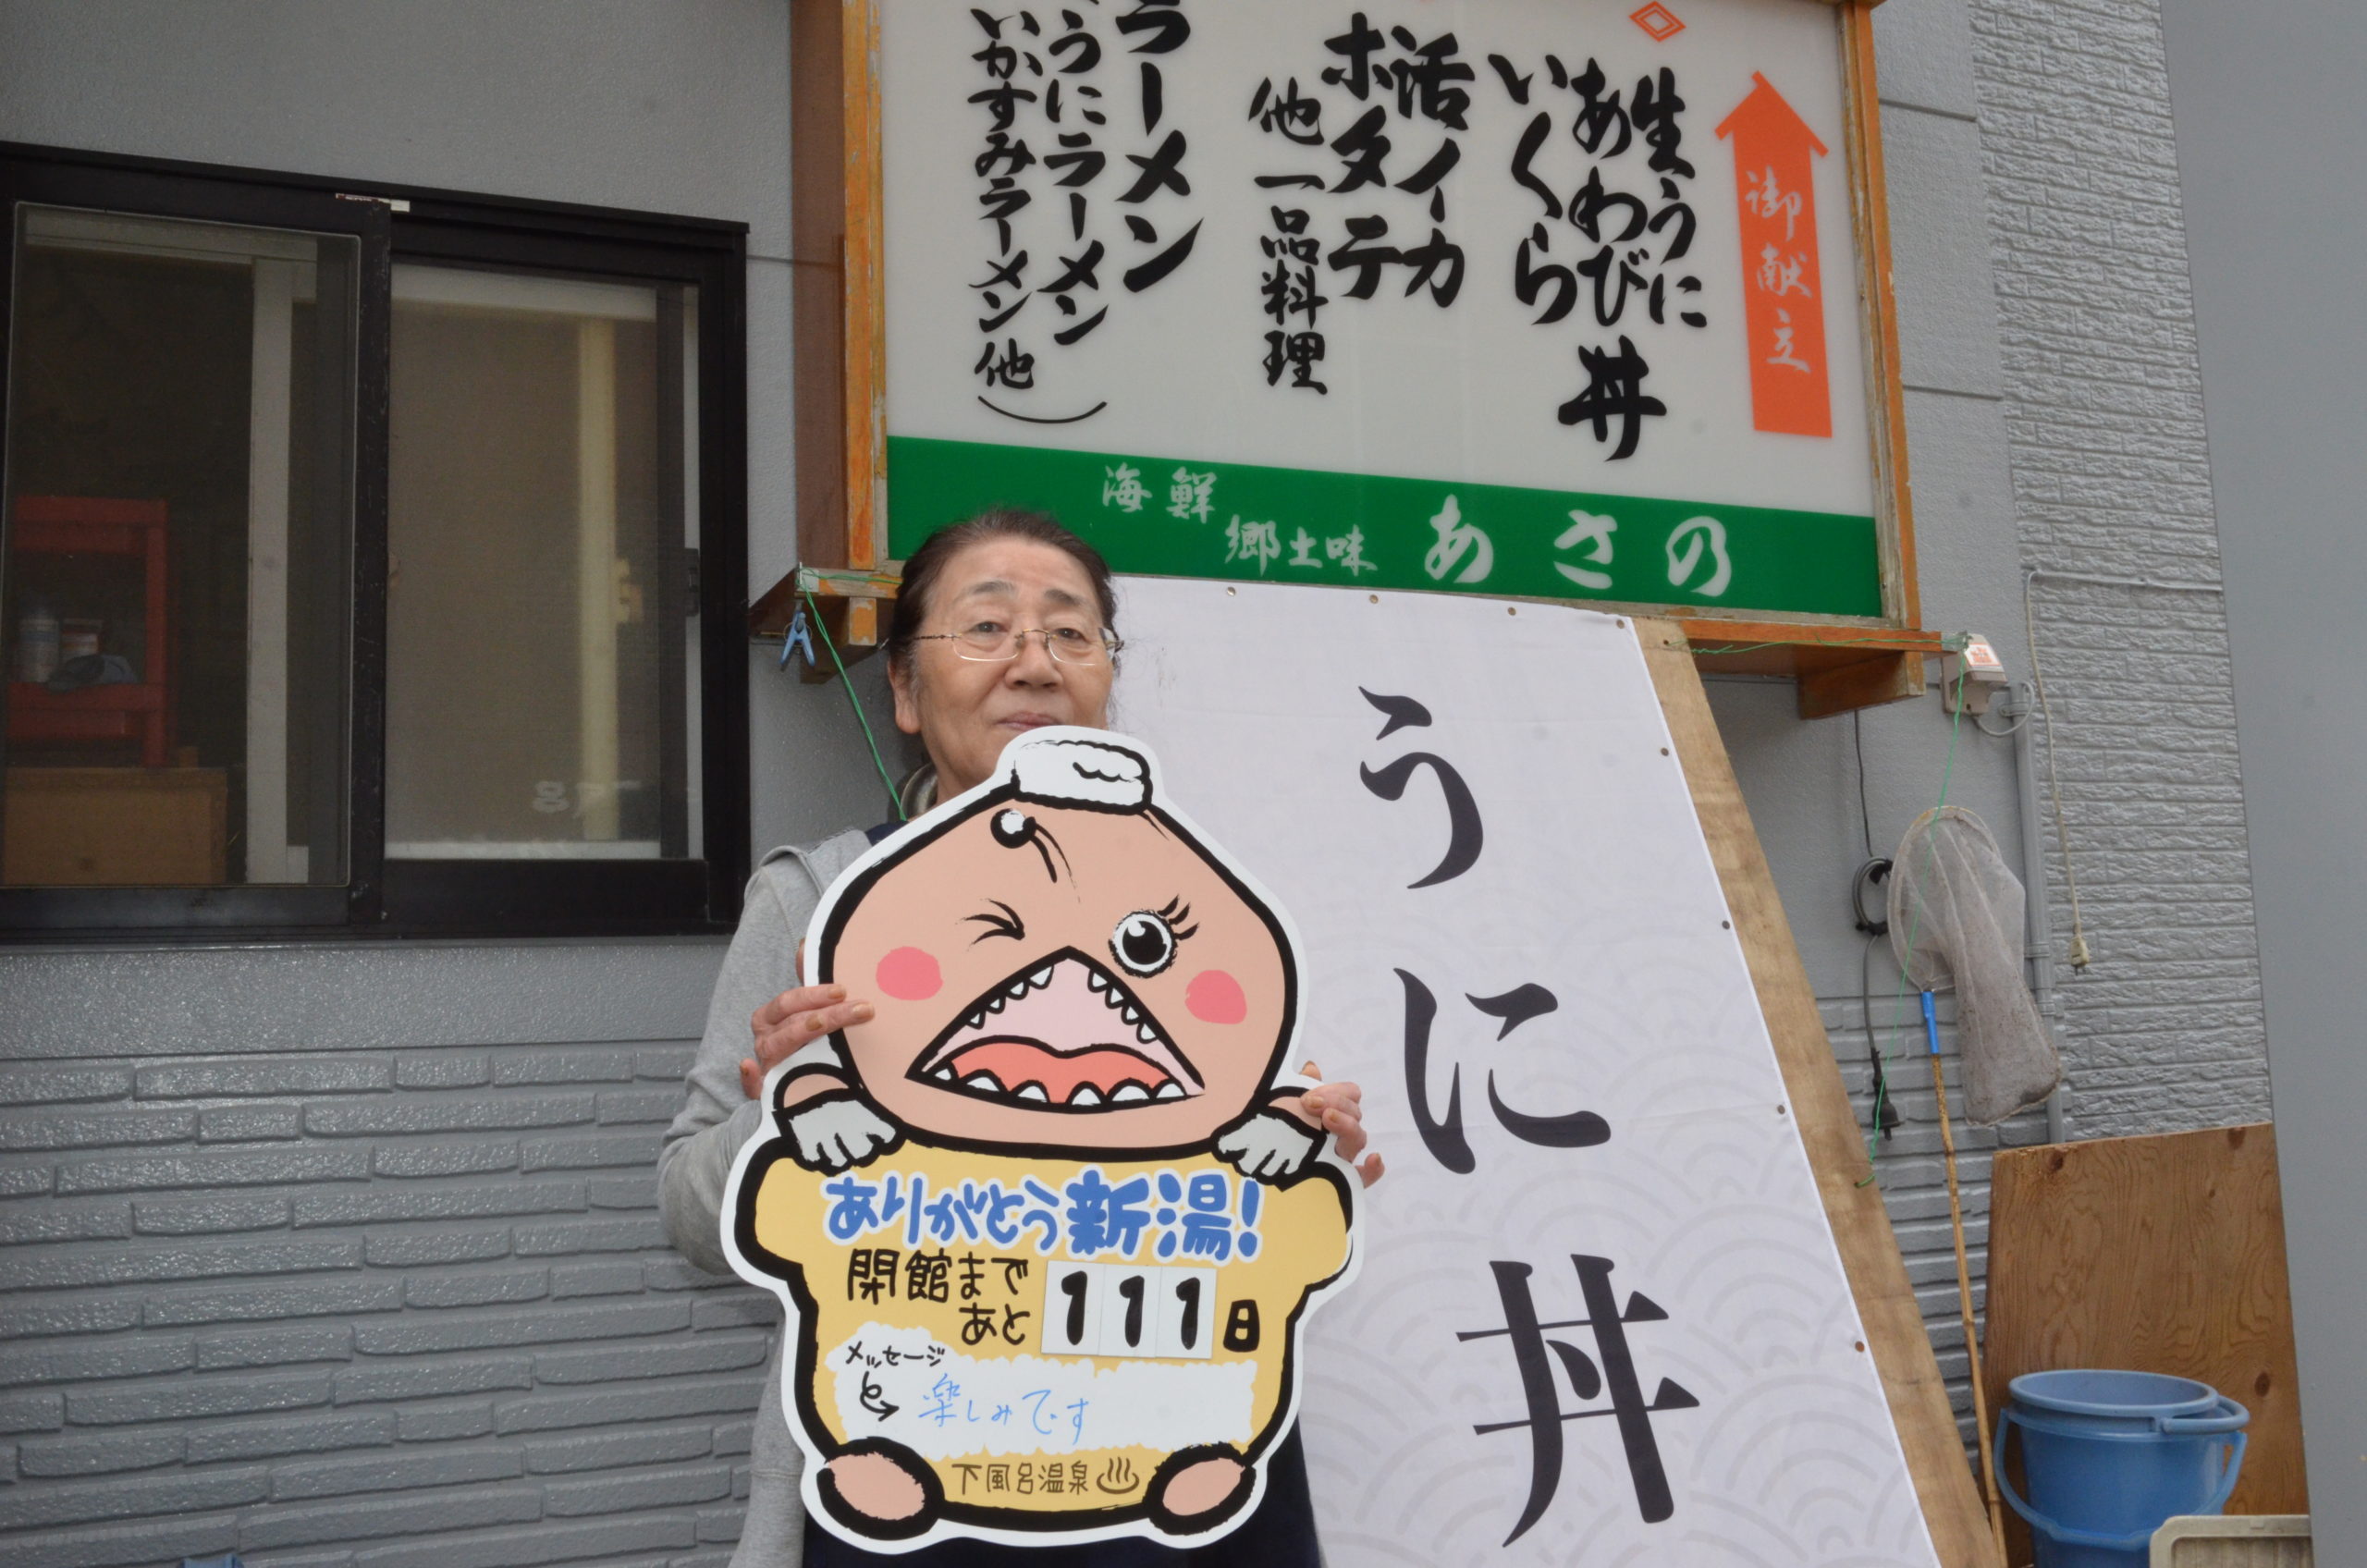 御献立
生うに
あわび丼
いくら
活イカ
ホタテ
他一品料理
ラーメン
うにラーメン
いかすみラーメン他）
海鮮
郷土味 あさの
うに丼
ありがとう新湯!
開館まで
あと 111日
メッセージ
楽しみです
下風呂温泉♨